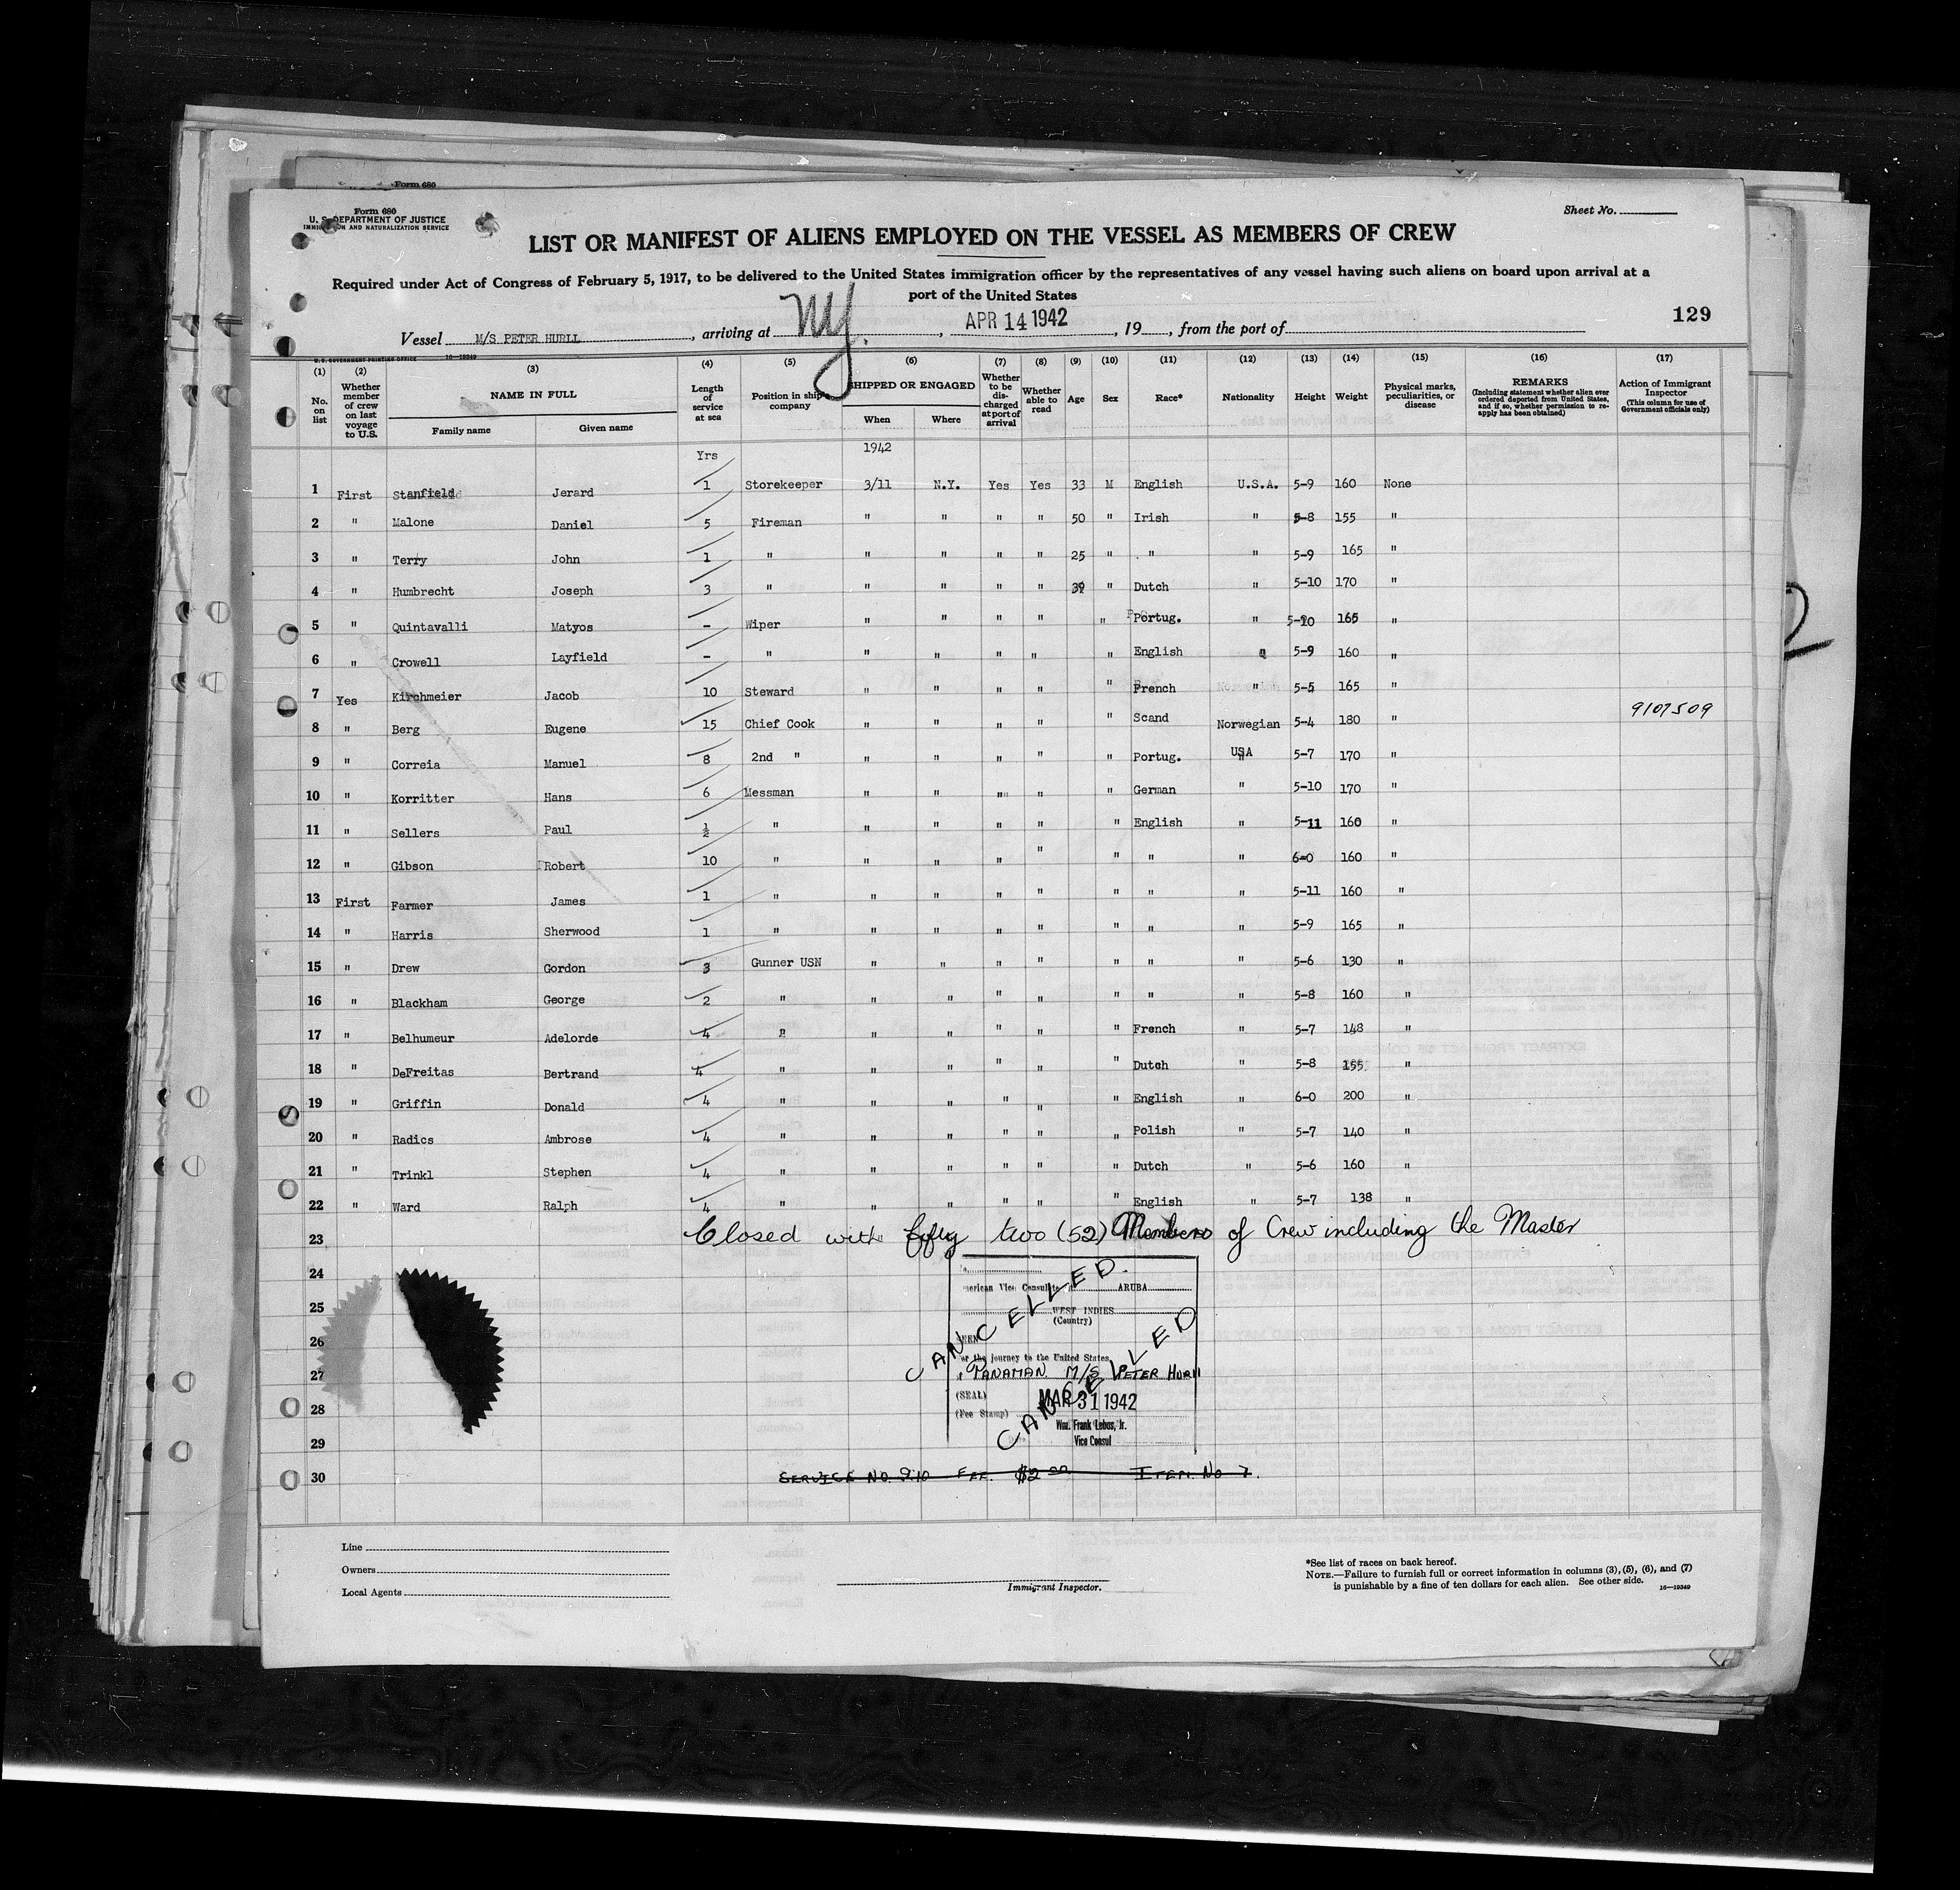 Form 680
Form 680
U. S. DEPARTMENT OF JUSTICE
IMMIGRATION AND NATURALIZATION SERVICE
Sheet No.
LIST OR MANIFEST OF ALIENS EMPLOYED ON THE VESSEL AS MEMBERS OF CREW
Required under Act of Congress of February 5, 1917, to be delivered to the United States immigration officer by the representatives of any vessel having such aliens on board upon arrival at a
port of the United States
129
Vessel M/S PETER HURLL, arriving at NY., APR 14 1942, 19, from the port of
U.S. GOVERNMENT PRINTING OFFICE 16—19349
(1) (2) (3) (4) (5) (6) (7) (8) (9) (10) (11) (12) (13) (14) (15) (16) (17)
No. on list
Whether member of crew on last voyage to U.S.
NAME IN FULL
Family name Given name
Length of service at sea
Position in ship's company
SHIPPED OR ENGAGED
When Where
Whether to be discharged at port of arrival
Whether able to read
Age
Sex
Race*
Nationality
Height
Weight
Physical marks, peculiarities, or disease
REMARKS
(Including statement whether alien ever ordered deported from United States, and if so, whether permission to reapply has been obtained)
Action of Immigrant Inspector
(This column for use of Government officials only)
Yrs 1942
1 First Stanfield Jerard 1 Storekeeper 3/11 N.Y. Yes Yes 33 M English U.S.A. 5-9 160 None
2 " Malone Daniel 5 Fireman " " " " 50 " Irish " 5-8 155 "
3 " Terry John 1 " " " " " 25 " " " 5-9 165 "
4 " Humbrecht Joseph 3 " " " " " 39 " Dutch " 5-10 170 "
5 " Quintavalli Matyos - Wiper " " " " " Portug. " 5-10 165 "
6 " Crowell Layfield - " " " " " " English " 5-9 160 "
7 Yes Kirchmeier Jacob 10 Steward " " " " " French " 5-5 165 "
8 " Berg Eugene 15 Chief Cook " " " " " Scand Norwegian 5-4 180 " 9107509
9 " Correia Manuel 8 2nd " " " " " " Portug. USA 5-7 170 "
10 " Korritter Hans 6 Messman " " " " " German " 5-10 170 "
11 " Sellers Paul ½ " " " " " " English " 5-11 160 "
12 " Gibson Robert 10 " " " " " " " " 6-0 160 "
13 First Farmer James 1 " " " " " " " " 5-11 160 "
14 " Harris Sherwood 1 " " " " " " " " 5-9 165 "
15 " Drew Gordon 3 Gunner USN " " " " " " " 5-6 130 "
16 " Blackham George 2 " " " " " " " " 5-8 160 "
17 " Belhumeur Adelorde 4 " " " " " " French " 5-7 148 "
18 " DeFreitas Bertrand 4 " " " " " " Dutch " 5-8 155 "
19 " Griffin Donald 4 " " " " " " English " 6-0 200 "
20 " Radics Ambrose 4 " " " " " " Polish " 5-7 140 "
21 " Trinkl Stephen 4 " " " " " " Dutch " 5-6 160 "
22 " Ward Ralph 4 " " " " " " English " 5-7 138 "
23 Closed with fifty two (52) Members of Crew including the Master
24
25
26
27
28
29
30
American Vice Consulate ARUBA
WEST INDIES
(Country)
SEEN
for the journey to the United States
PANAMAN M/S PETER HURLL
(SEAL) MAR 31 1942
(Fee Stamp) Wm. Frank Lebus, Jr.
Vice Consul
CANCELLED.
CANCELLED
SERVICE NO. 910 FEE. $2.00 ITEM No 7.
Line
Owners
Local Agents
Immigrant Inspector.
*See list of races on back hereof.
NOTE.—Failure to furnish full or correct information in columns (3), (5), (6), and (7)
is punishable by a fine of ten dollars for each alien. See other side. 16—19349